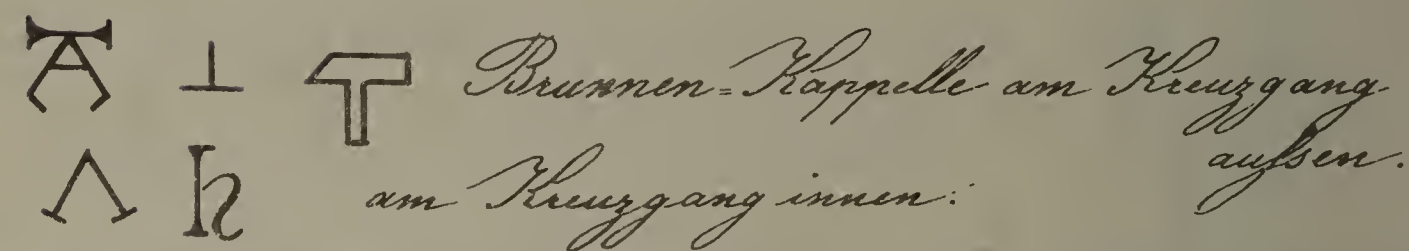 Brunnen=Kappelle am Kreuzgang
aufsen.
am Kreuzgang innen: